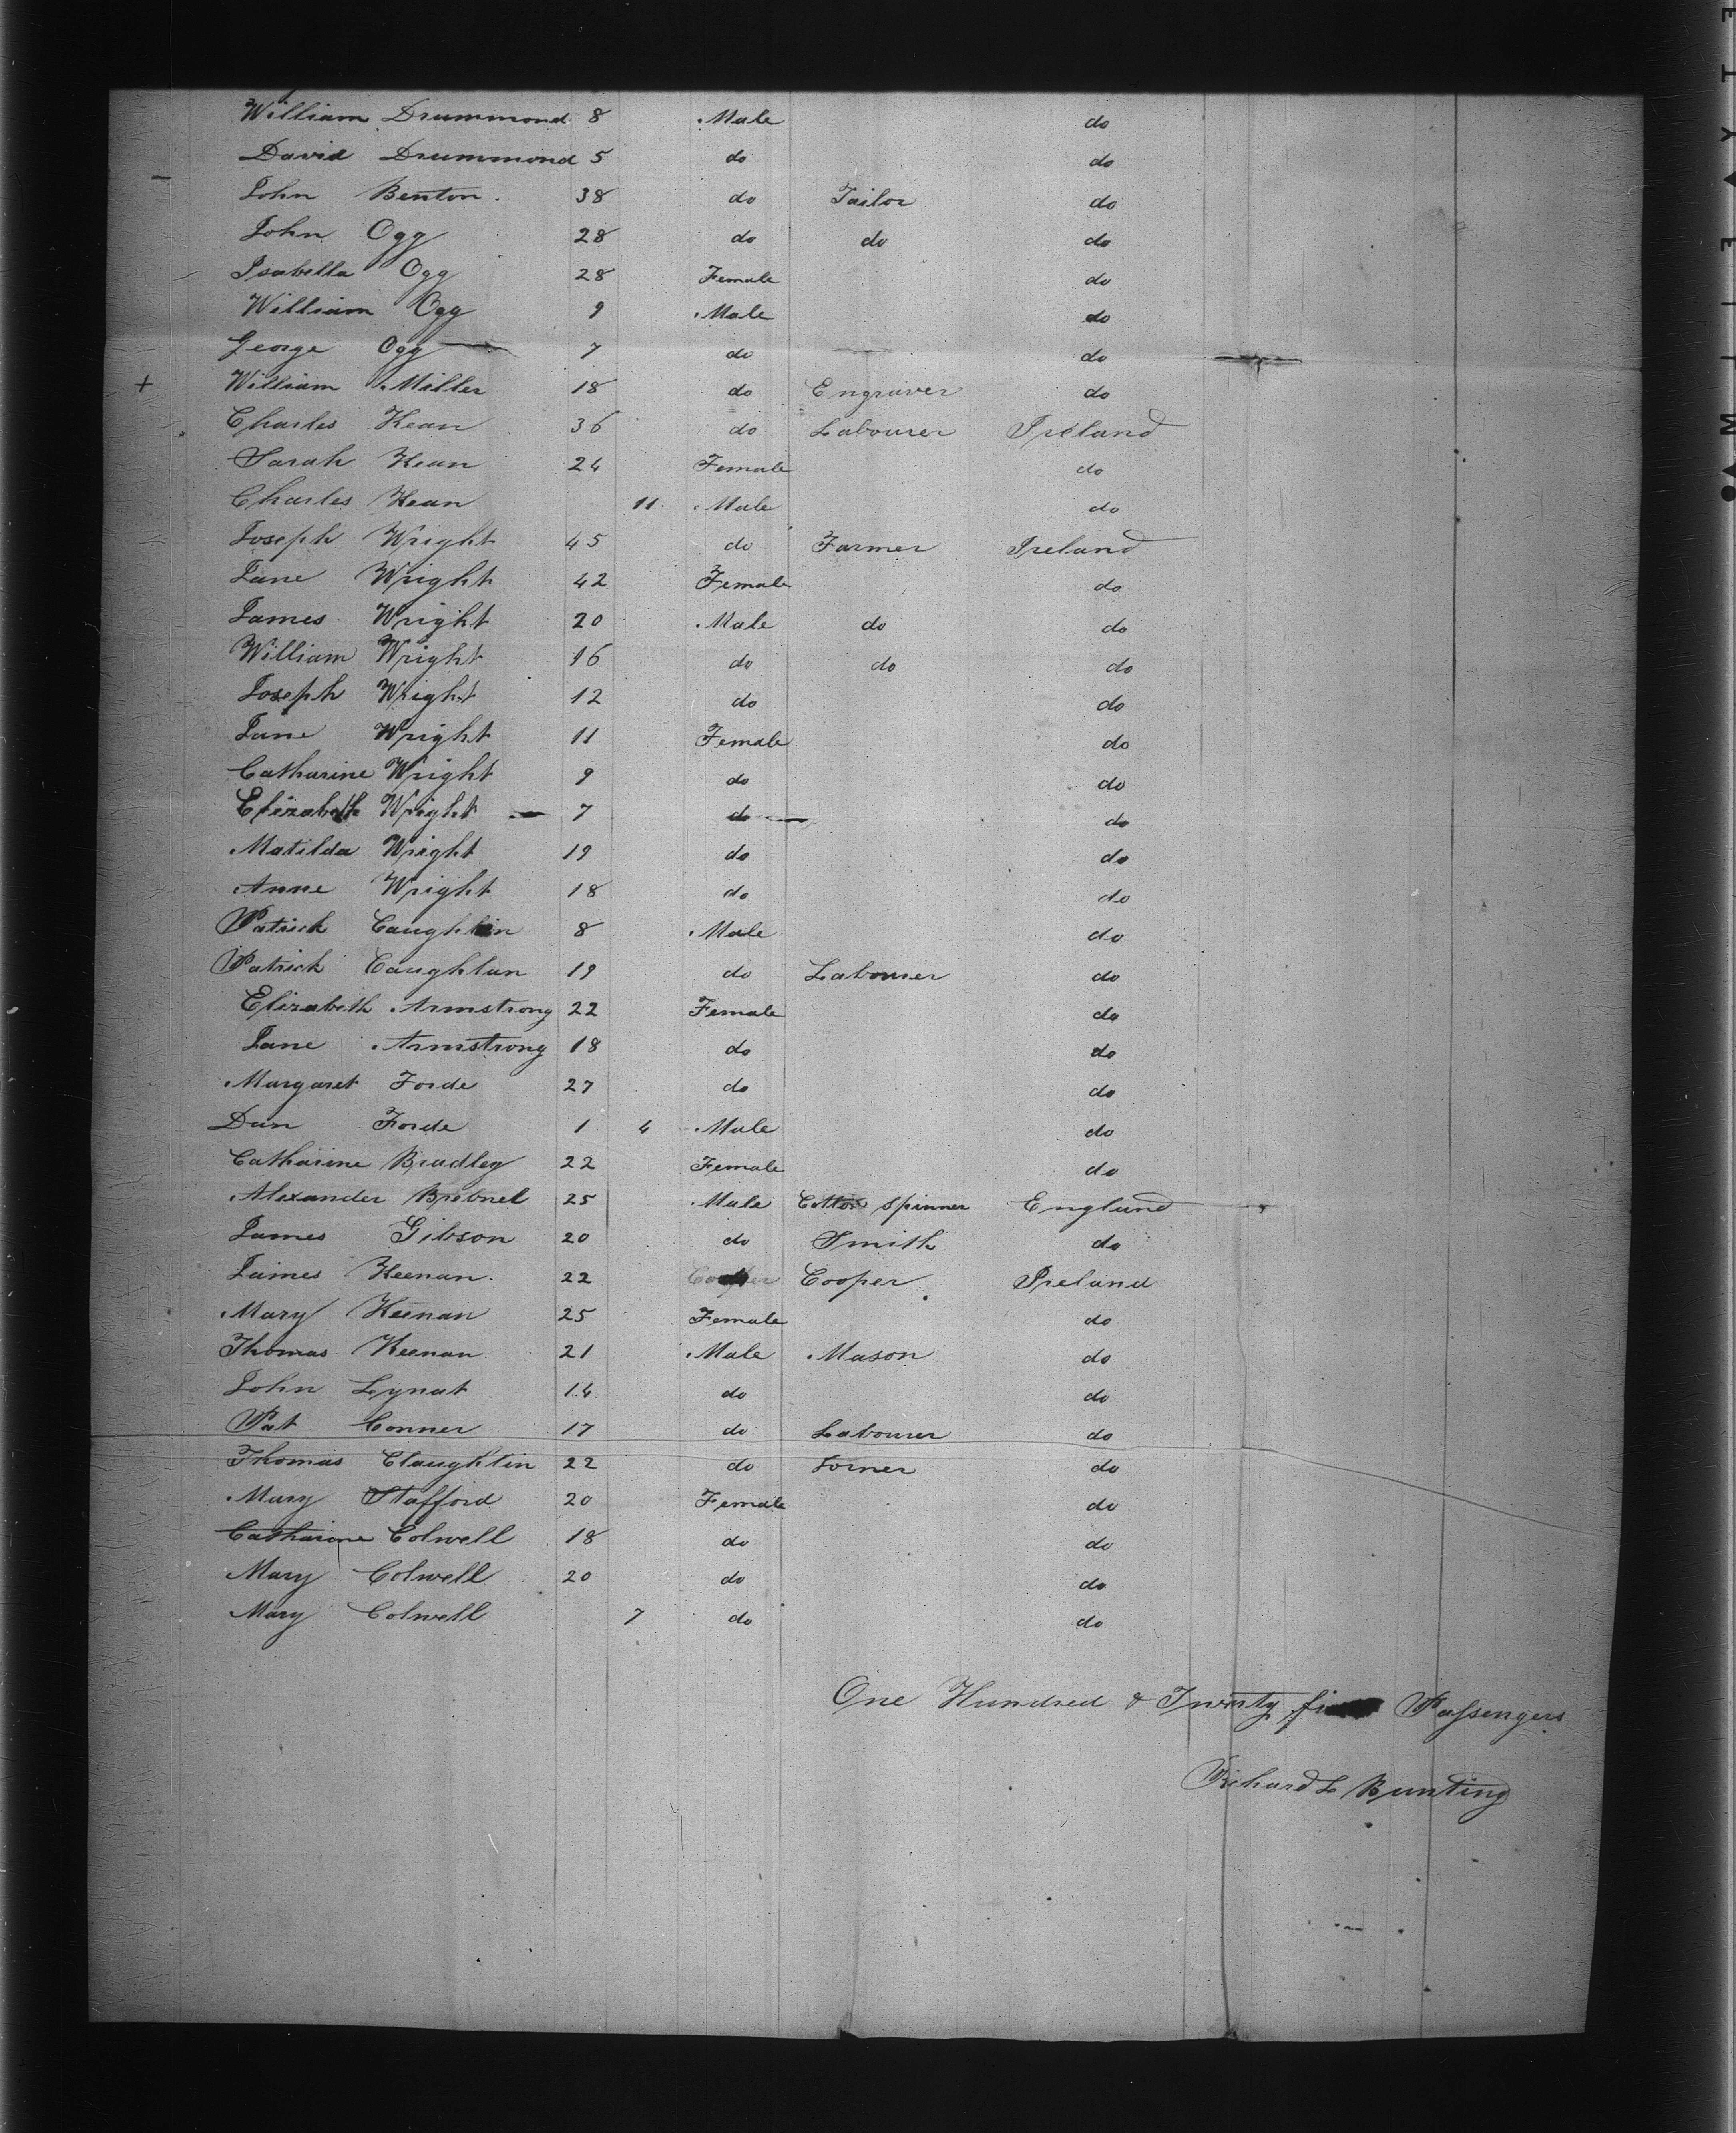 William Drummond 8 Male do
David Drummond 5 do do
John Benton. 38 do Tailor do
John Ogg 28 do do do
Isabella Ogg 28 Female do
William Ogg 9 Male do
George Ogg 7 do do
+ William Miller 18 do Engraver do
Charles Kean 36 do Labourer Ireland
Sarah Kean 24 Female do
Charles Kean 11 Male do
Joseph Wright 45 do Farmer Ireland
Jane Wright 42 Female do
James Wright 20 Male do do
William Wright 16 do do do
Joseph Wright 12 do do
Jane Wright 11 Female do
Catharine Wright 9 do do
Elizabeth Wright 7 do do
Matilda Wright 19 do do
Anne Wright 18 do do
Patrick 8 Male do
Patrick Caughlan 19 do Labourer do
Elizabeth Armstrong 22 Female do
Jane Armstrong 18 do do
Margaret Forde 27 do do
Dan Forde 1 4 Male do
Catharine Bradley 22 Female do
Alexander 25 Male Cotton Spinner England
James Gibson 20 do Smith do
James Keenan. 22 Cooper Ireland
Mary Keenan 25 Female do
Thomas Keenan. 21 Male Mason do
John 14 do do
Pat Conner 17 do Labourer do
Thomas Claughlin 22 do do
Mary Stafford 20 Female do
Catharine Colwell 18 do do
Mary Colwell 20 do do
Mary Colwell 7 do do
One Hundred & Twenty Passengers
Richard L Bunting